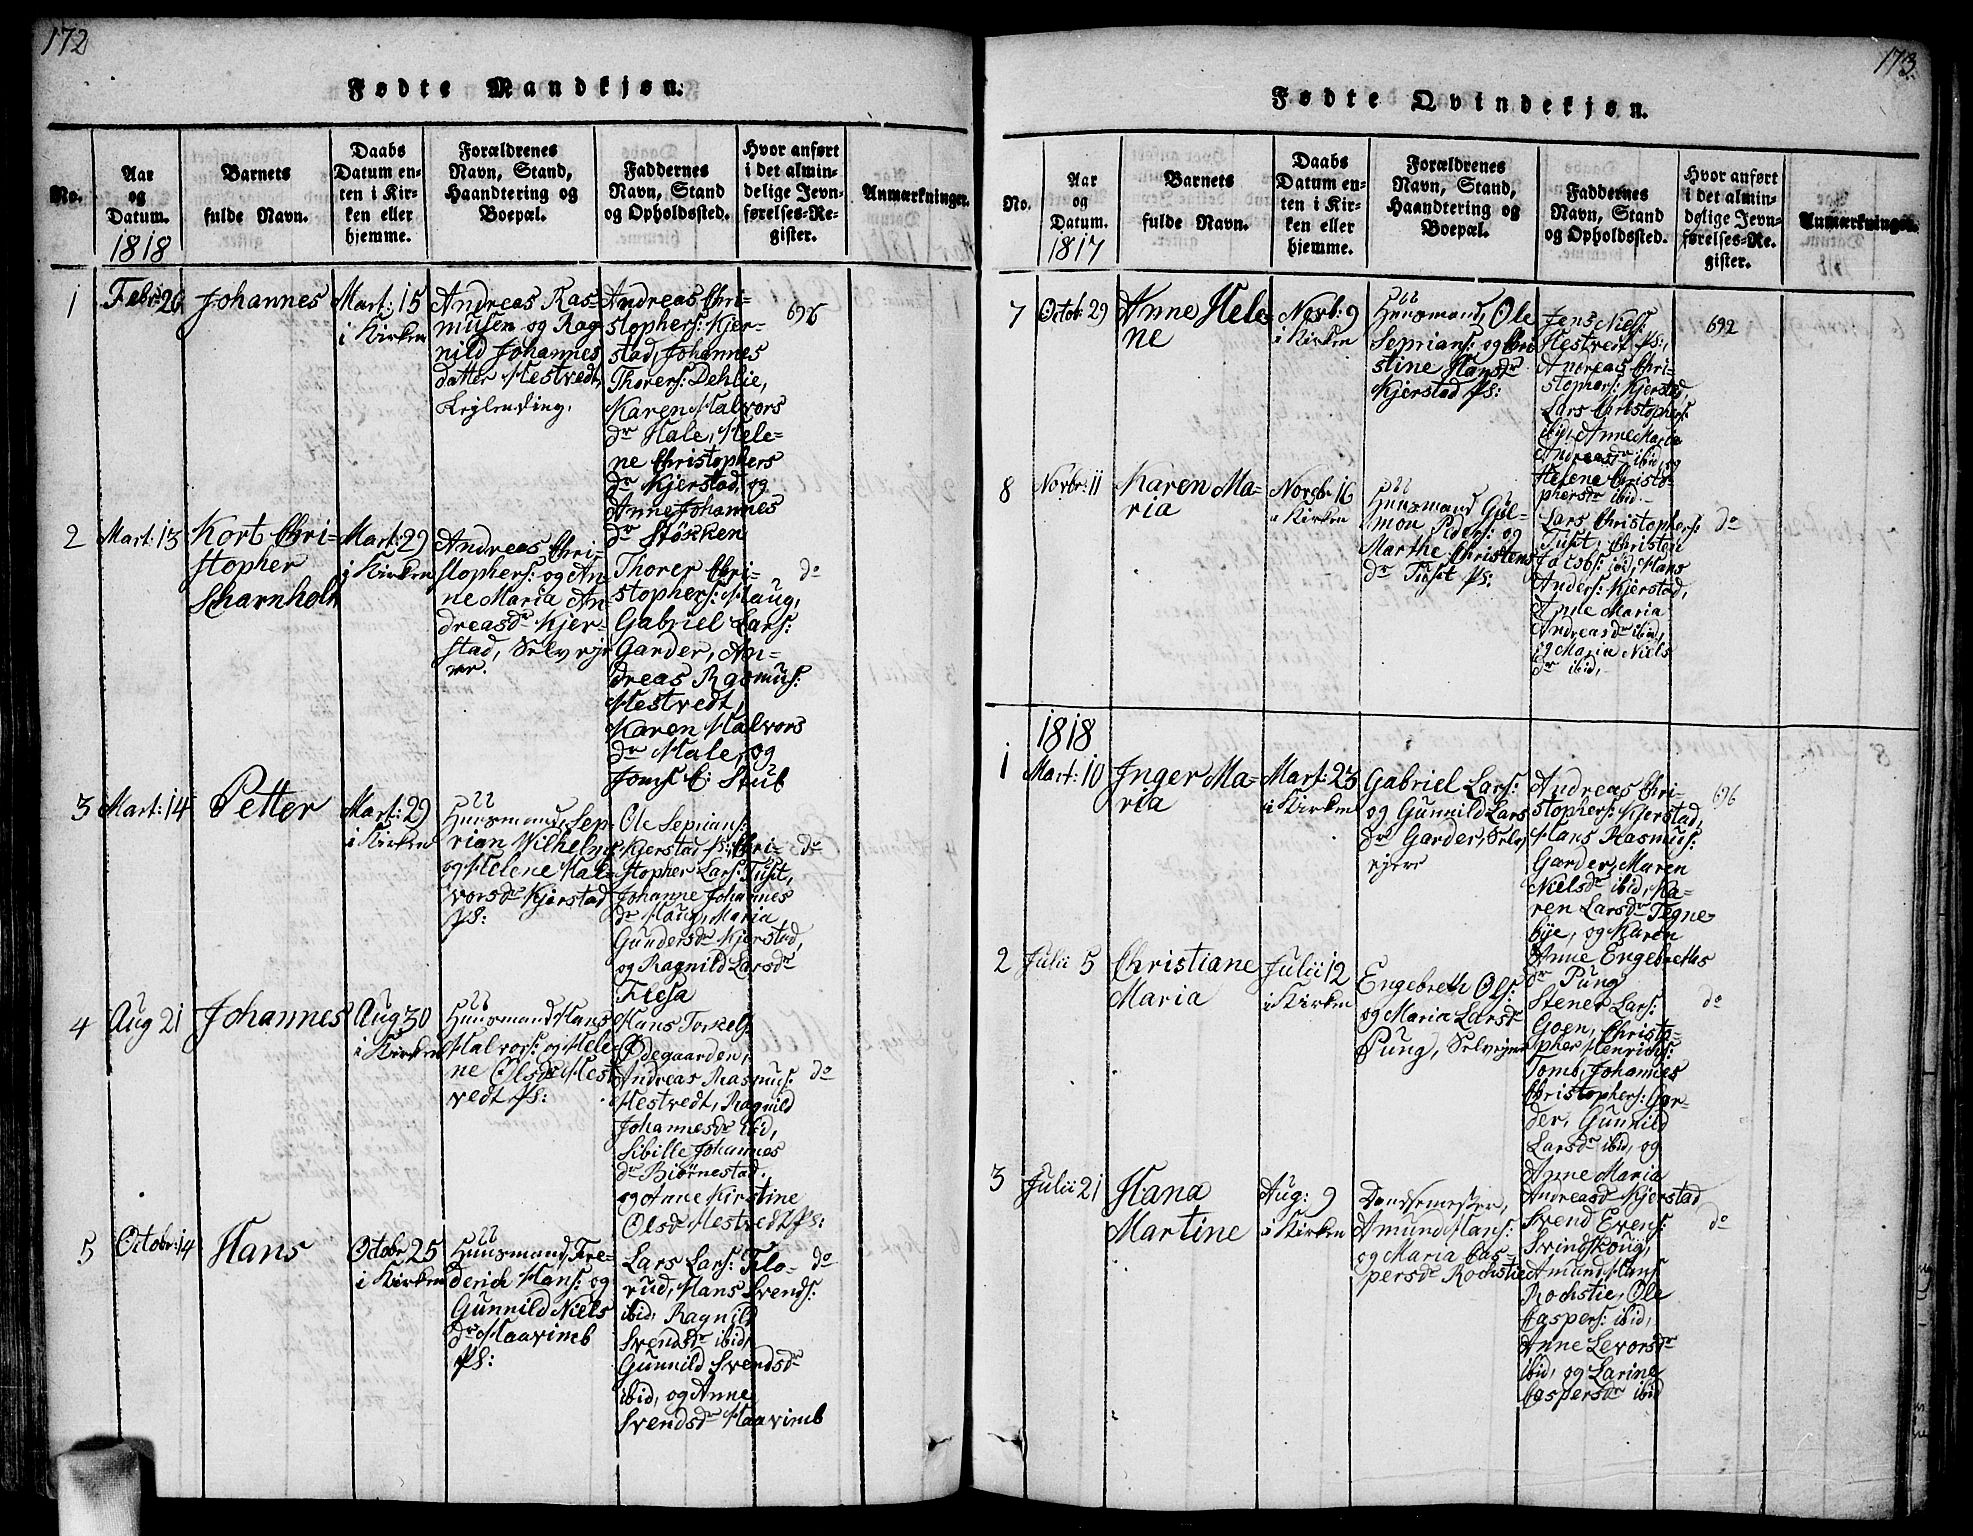 172
Fødte Mandkjøn.
No.
Aar
og
Datum.
1818
Barnets
fulde Navn.
Daabs
Datum en-
ten i Kir-
ken eller
hjemme.
Forældrenes
Navn, Stand,
Haandtering og
Boepæl.
Faddernes
Navn, Stand
og Opholdssted.
Hvor anført
i det almin-
delige Jevn-
førelses-Re-
gister.
Anmærkninger.
1
Febr: 26
Johannes
Mart: 15
i Kirken
Andreas Ras-
musen og Rag
nild Johannes
datter Hestvedt,
Lejlending.
Andreas Chri-
stophers: Kjer-
stad, Johannes
Thorers: Dehlie,
Karen Halvors
dr Hale, Hele-
ne Christophers
dr Kjerstad, og
Anne Johannes
dr Støkken
696
2
Mart: 13
Kort Chri-
stopher
Scharnholt
Mart: 29
i Kirken
Andreas Chri-
stophers: og An-
ne Maria An-
dreasdr Kjer-
stad, Selveje
rer.
Thorer Chri-
stophers: Haug,
Gabriel Lars:
Garder, An-
dreas Rasmus:
Hestvedt,
Karen Halvors
dr Hale, og
Jomf: C: Stub
do
3
Mart: 14
Petter
Mart: 29
i Kirken
Huusmand, Sep-
rian Wilhelms
og Helene Hal-
vorsdr Kjerstad
Ps:
Ole Seprians:
Kjerstad Ps:, Chri-
stopher Lars: Tust,
Johanne Johannes
dr Haug, Maria
Gundersdr Kjerstad,
og Ragnild Larsdr
Flesa
do
4
Aug 21
Johannes
Aug 30
i Kirken
Huusmand Hans
Halvors: og Hele
ne Olsdr Hest
vedt Ps:
Hans Torkels:
Ødegaarden,
Andreas Rasmus:
Hestvedt, Ragnild
Johannesdr ibid,
Sibille Johannes
dr Biørnestad.
og Anne Kirstine
Olsdr Hestvedt Ps:
do
5
Octobr: 14
Hans
Octobr 25
i Kirken
Huusmand Fre-
derich Hans: og
Gunnild Niels
dr Haavimb
Ps:
Lars Lars: Flo-
rud, Hans Svends:
ibid, Ragnild
Svendsdr ibid,
Gunnild Svendsdr
ibid, og Anne
Svendsdr Haavimb
do
173.
Fødte Qvindekjøn.
No.
Aar
og
Datum.
1817
Barnets
fulde Navn.
Daabs
Datum en-
ten i Kir-
ken eller
hjemme.
Forældrenes
Navn, Stand,
Haandtering og
Boepæl.
Faddernes
Navn, Stand
og Opholdssted.
Hvor anført
i det almin-
delige Jevn-
førelses-Re-
gister.
Anmærkninger.
7
Octob: 29
Anne Hele
ne
Novb: 9
i Kirken
Huusmand, Ole
Seprians: og Chri
stine Hansdr
Kjerstad Ps:
Jens Niels:
Hestvedt Ps:,
Andreas Chri-
stophers: Kjerstad,
Lars Christophers:
ibid, Anne Maria
Andreasdr ibid, og
Helene Christo-
phersdr ibid.
692
8
Novbr: 11
Karen Ma-
ria
Novbr 16
i Kirken
Huusmand Gul-
mon Peders: og
Marthe Christens
dr Tust Ps:
Lars Christophers:
Tust, Christen
Jacobs: ibid, Hans
Anders: Kjerstad,
Anne Maria
Andreasdr ibid,
og Maria Niels
dr ibid,
do
1818
1
Mart: 10
Inger Ma-
ria
Mart: 23
i Kirken
Gabriel Lars:
og Gunnild Lars
dr Garder, Selv
ejere
Andreas Chri-
stophers: Kjerstad,
Hans Rasmus:
Garder, Maren
Nielsdr ibid, Ka-
ren Larsdr Tegne-
bye, og Karen
Anne Engebreths
dr Pung
696
2
Julii 5
Christiane
Maria
Julii 12
i Kirken
Engebreth Ols:
og Maria Larsdr
Pung, Selvejere
Stener Lars:
Goen, Christo-
pher Henrichs:
Tomb, Johannes
Christophers: Gar-
der, Gunnild
Larsdr ibid, og
Anne Maria
Andreasdr Kjerstad
do
3
Julii 21
Hana
Martine
Aug: 9
i Kirken
Amund Hans:
og Maria Cas-
persdr Rochstie
Svend Evens:
Svindskoug,
Amund Hans:
Rochstie, Ole
Caspers: ibid,
Anne Levorsdr
ibid, og Larine
Caspersdr ibid
do